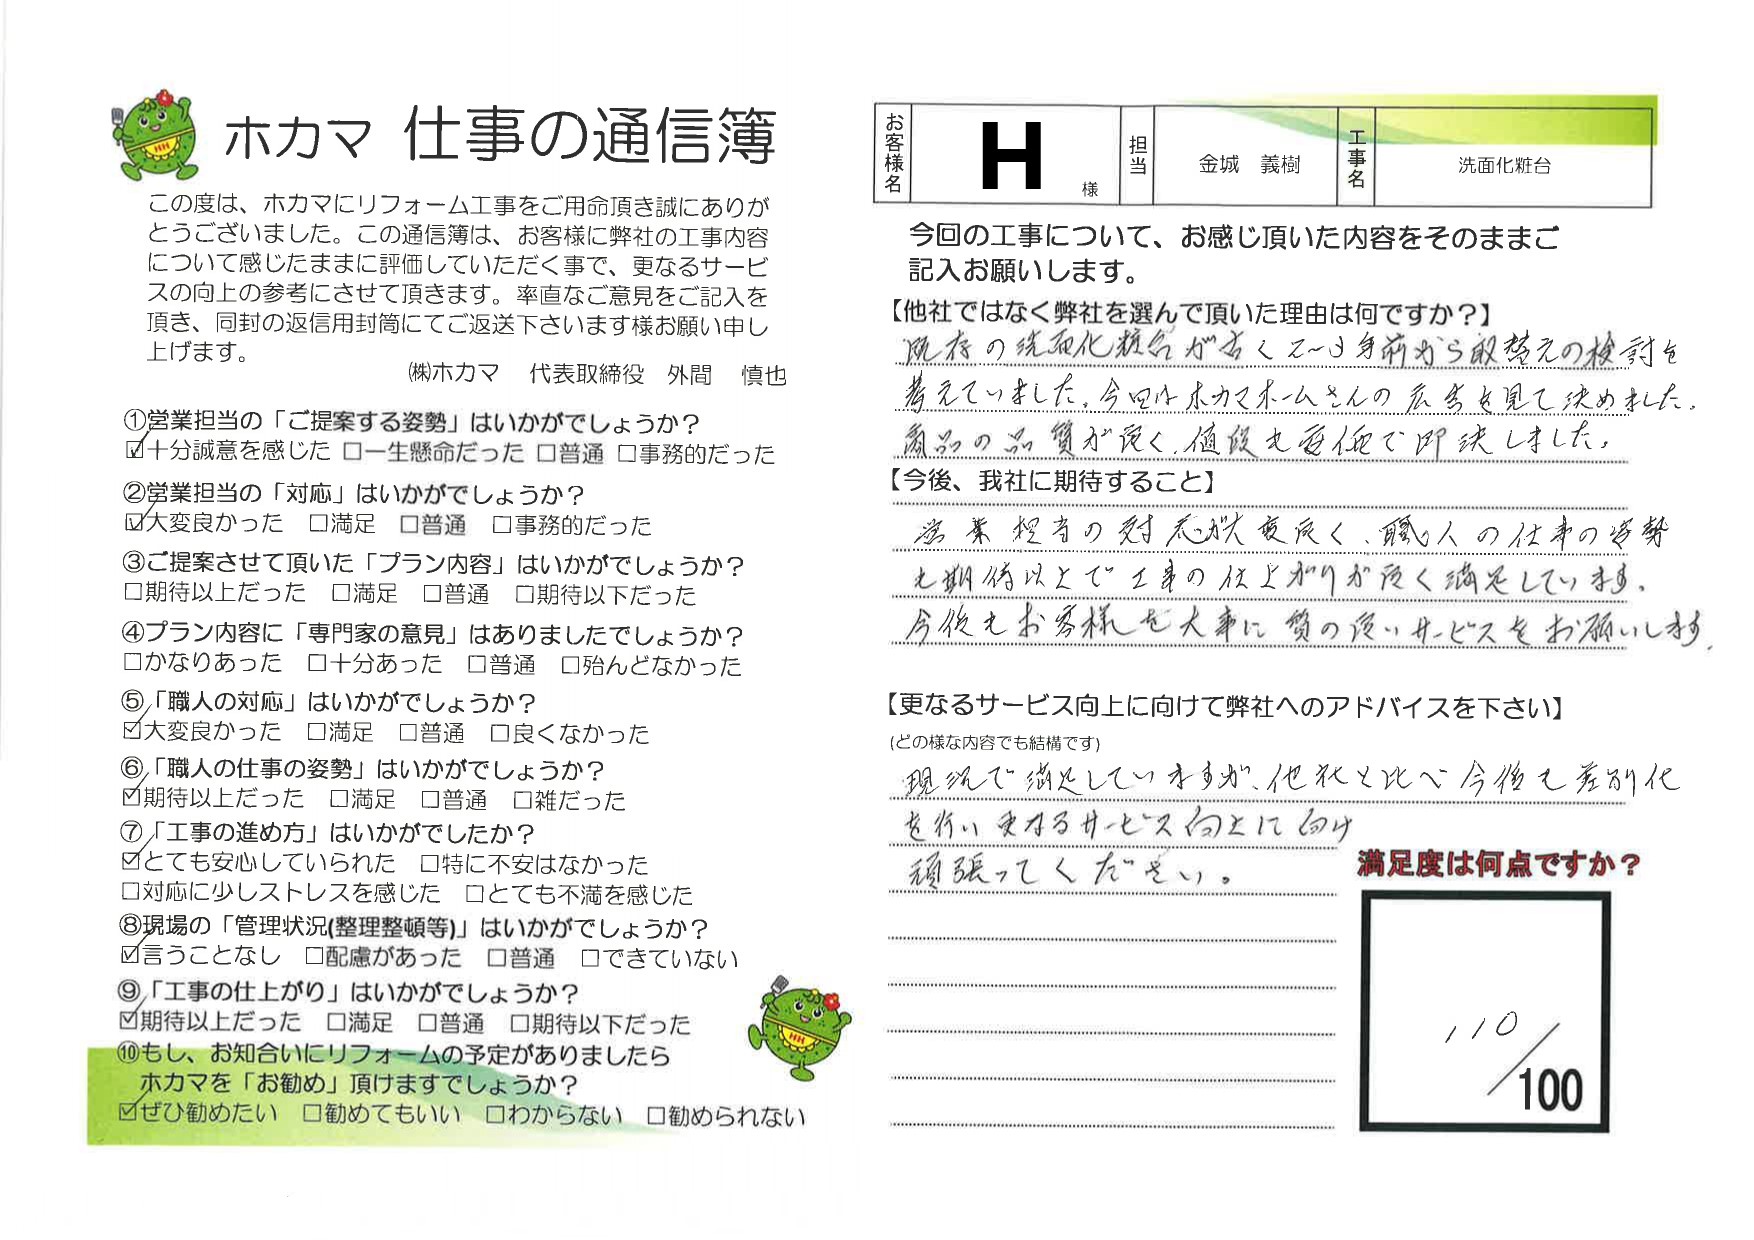 ホカマ 仕事の通信簿
この度は、ホカマにリフォーム工事をご用命頂き誠にありが
とうございました。この通信簿は、お客様に弊社の工事内容
について感じたままに評価していただく事で、更なるサービ
スの向上の参考にさせて頂きます。率直なご意見をご記入を
頂き、同封の返信用封筒にてご返送下さいます様お願い申し
上げます。
㈱ホカマ 代表取締役 外間 慎也
①営業担当の「ご提案する姿勢」はいかがでしょうか？
☑十分誠意を感じた □一生懸命だった □普通 □事務的だった
②営業担当の「対応」はいかがでしょうか？
☑大変良かった □満足 □普通 □事務的だった
③ご提案させて頂いた「プラン内容」はいかがでしょうか？
□期待以上だった □満足 □普通 □期待以下だった
④プラン内容に「専門家の意見」はありましたでしょうか？
□かなりあった □十分あった □普通 □殆んどなかった
⑤「職人の対応」はいかがでしょうか？
☑大変良かった □満足 □普通 □良くなかった
⑥「職人の仕事の姿勢」はいかがでしょうか？
☑期待以上だった □満足 □普通 □雑だった
⑦「工事の進め方」はいかがでしたか？
☑とても安心していられた □特に不安はなかった
□対応に少しストレスを感じた □とても不満を感じた
⑧現場の「管理状況(整理整頓等)」はいかがでしょうか？
☑言うことなし □配慮があった □普通 □できていない
⑨「工事の仕上がり」はいかがでしょうか？
☑期待以上だった □満足 □普通 □期待以下だった
⑩もし、お知合いにリフォームの予定がありましたら
ホカマを「お勧め」頂けますでしょうか？
☑ぜひ勧めたい □勧めてもいい □わからない □勧められない
HH
お客様名 H 様 担当 金城 義樹 工事名 洗面化粧台
今回の工事について、お感じ頂いた内容をそのままご
記入お願いします。
【他社ではなく弊社を選んで頂いた理由は何ですか？】
既存の洗面化粧台が古く2～3年前から取替えの検討を
考えていました。今回はホカマホームさんの広告を見て決めました。
商品の品質が良く、値段も安価で即決しました。
【今後、我社に期待すること】
営業担当の対応が大変良く、職人の仕事の姿勢
も期待以上で工事の仕上がりが良く満足しています。
今後もお客様を大事に質の良いサービスをお願いします。
【更なるサービス向上に向けて弊社へのアドバイスを下さい】
(どの様な内容でも結構です)
現況で満足していますが、他社と比べ今後も差別化
を行い更なるサービス向上に向け
頑張ってください。
満足度は何点ですか？
110/100
HH